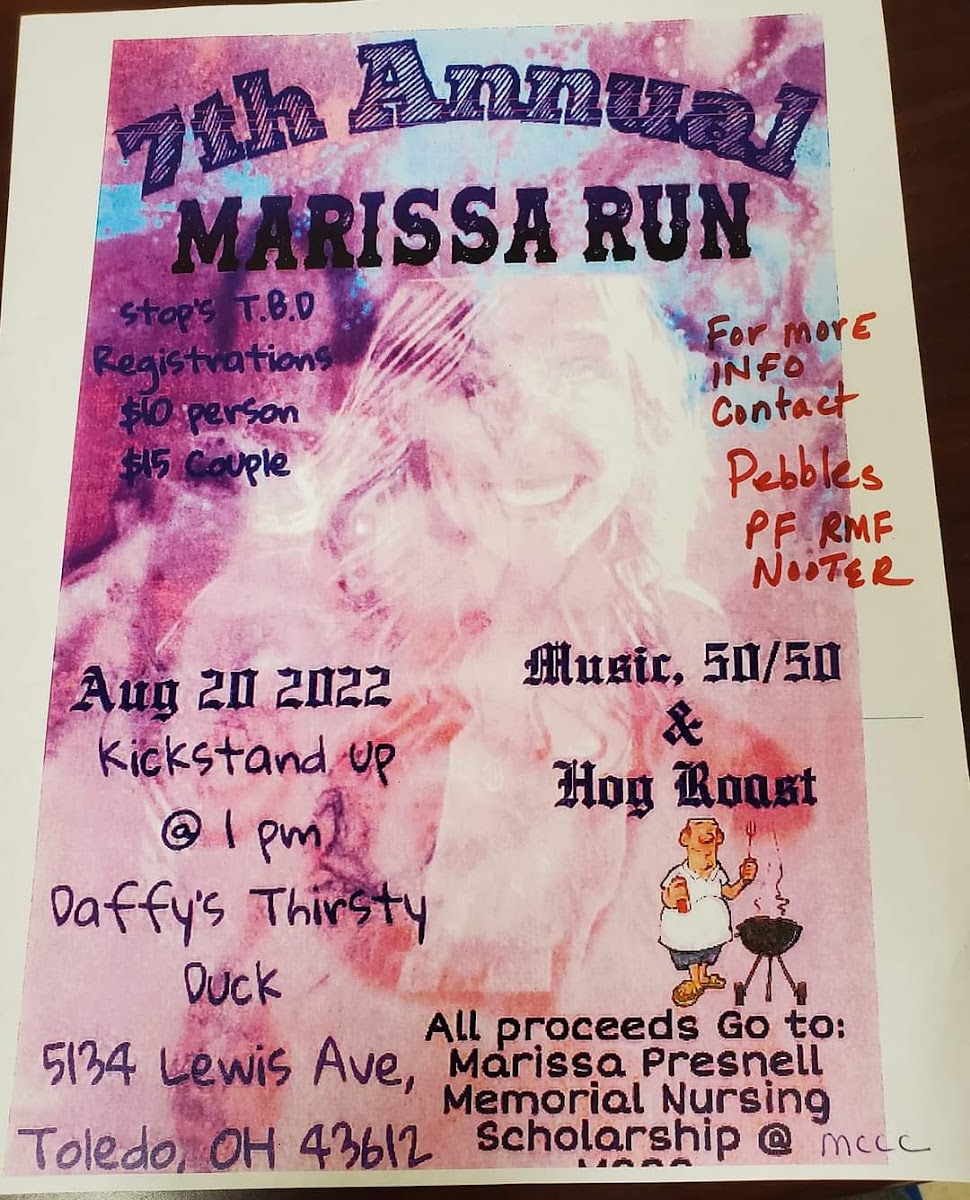 7th Annual
MARISSA RUN
Stop's T.B.D
Registrations
$10 person
$15 Couple
For morE
INFO
Contact
Pebbles
PF RMF
NOOTER
Aug 20 2022
Kickstand up
@ 1 pm
Daffy's Thirsty
Duck
5134 Lewis Ave,
Toledo, OH 43612
Music, 50/50
&
Hog Roast
All proceeds Go to:
Marissa Presnell
Memorial Nursing
Scholarship @ mccc